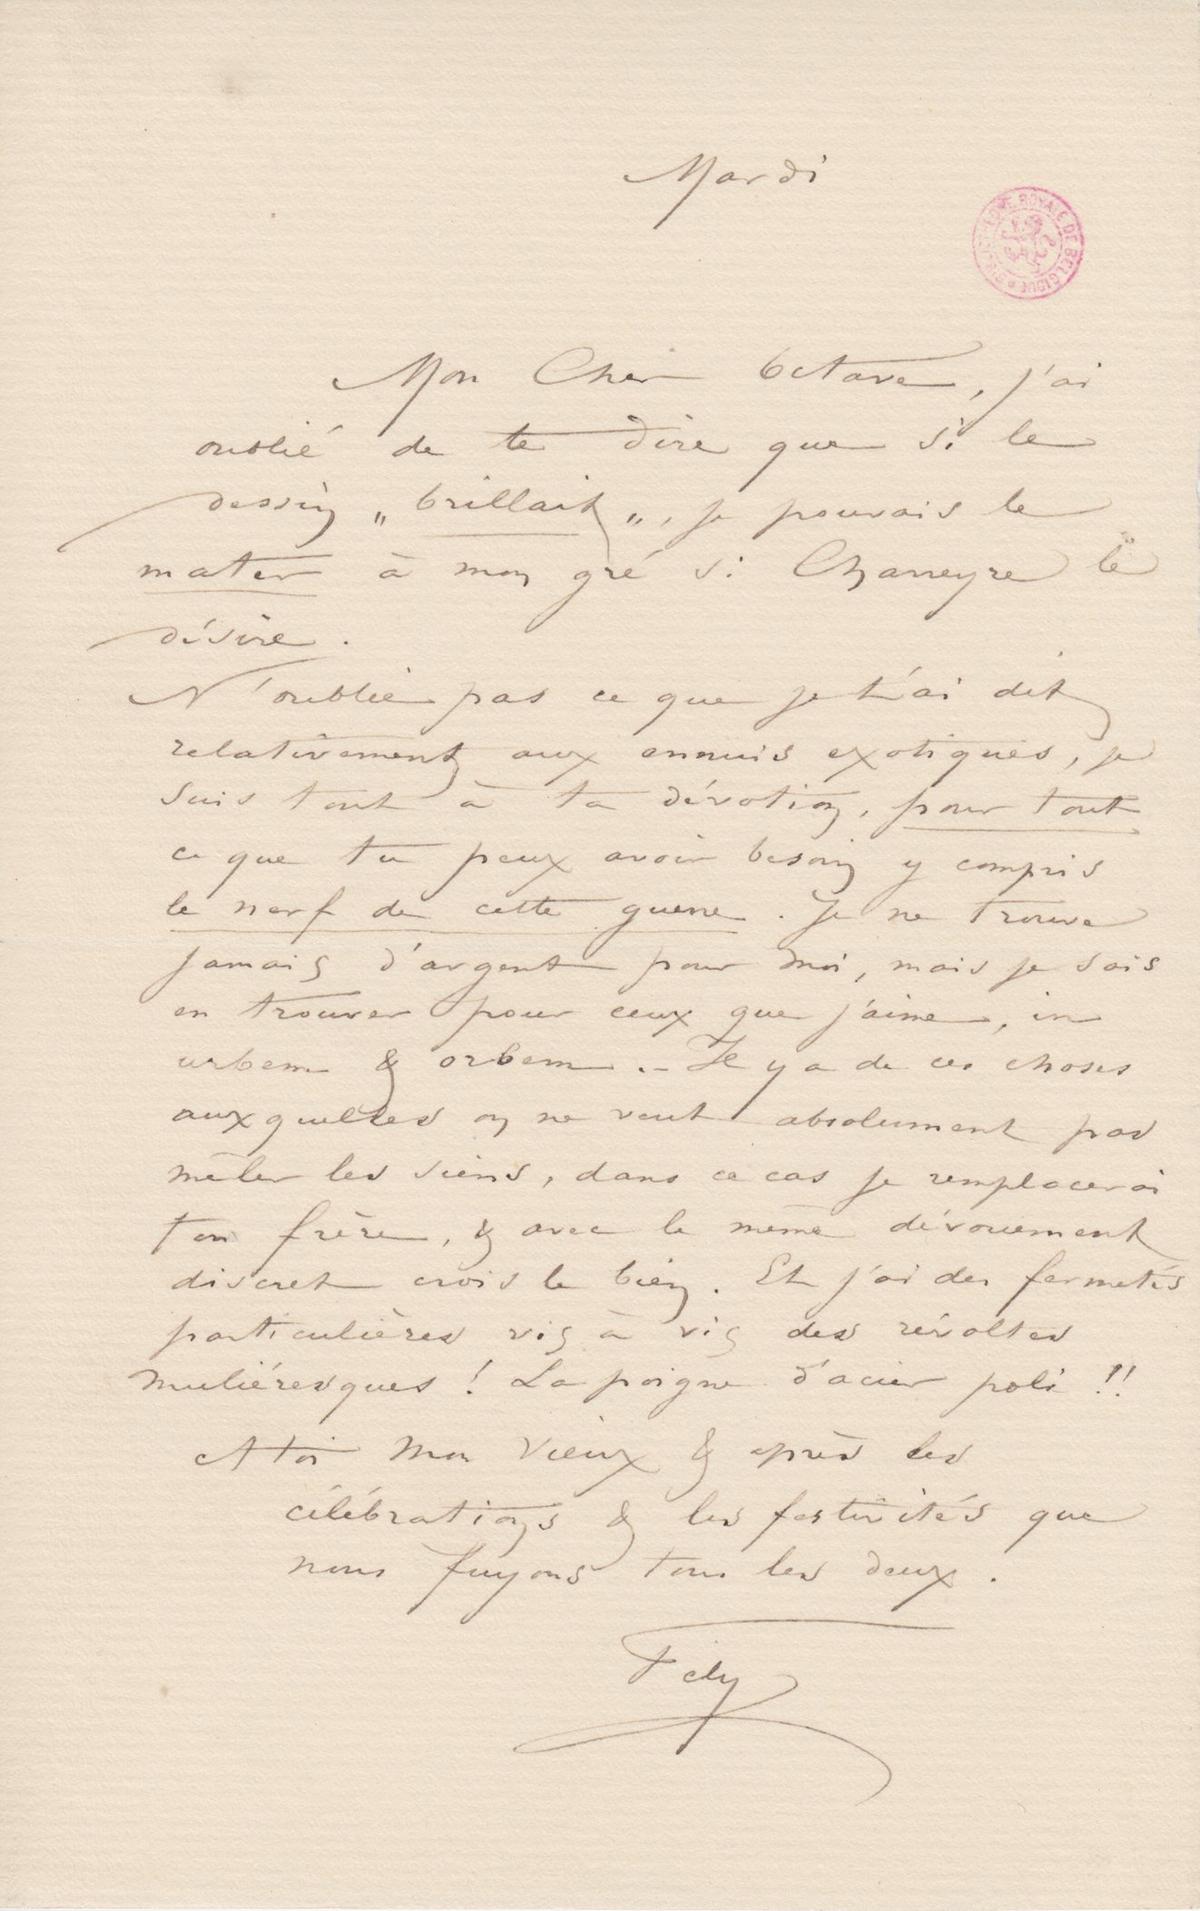 Mardi
BIBLIOTHÈQUE ROYALE DE BELGIQUE
Mon Cher Octave, j'ai
oublié de te dire que si le
dessin „ brillait „, je pouvais le
mater à mon gré si Charreyre le
désire.
N'oublie pas ce que je t'ai dit
relativement aux ennuis exotiques, je
suis tout à ta dévotion, pour tout
ce que tu peux avoir besoin y compris
le nerf de cette guerre. Je ne trouve
jamais d'argent pour moi, mais je sais
en trouver pour ceux que j'aime, in
urbem & orbem. – Il y a de ces choses
auxquelles on ne veut absolument pas
mêler les siens, dans ce cas je remplacerai
ton frère, & avec le même dévouement
discret crois le bien. Et j'ai des fermetés
particulières vis à vis des révoltes
muliéresques ! La poigne d'acier poli !!
A toi mon vieux & après les
célébrations & les festivités que
nous fuyons tous les deux.
Fély